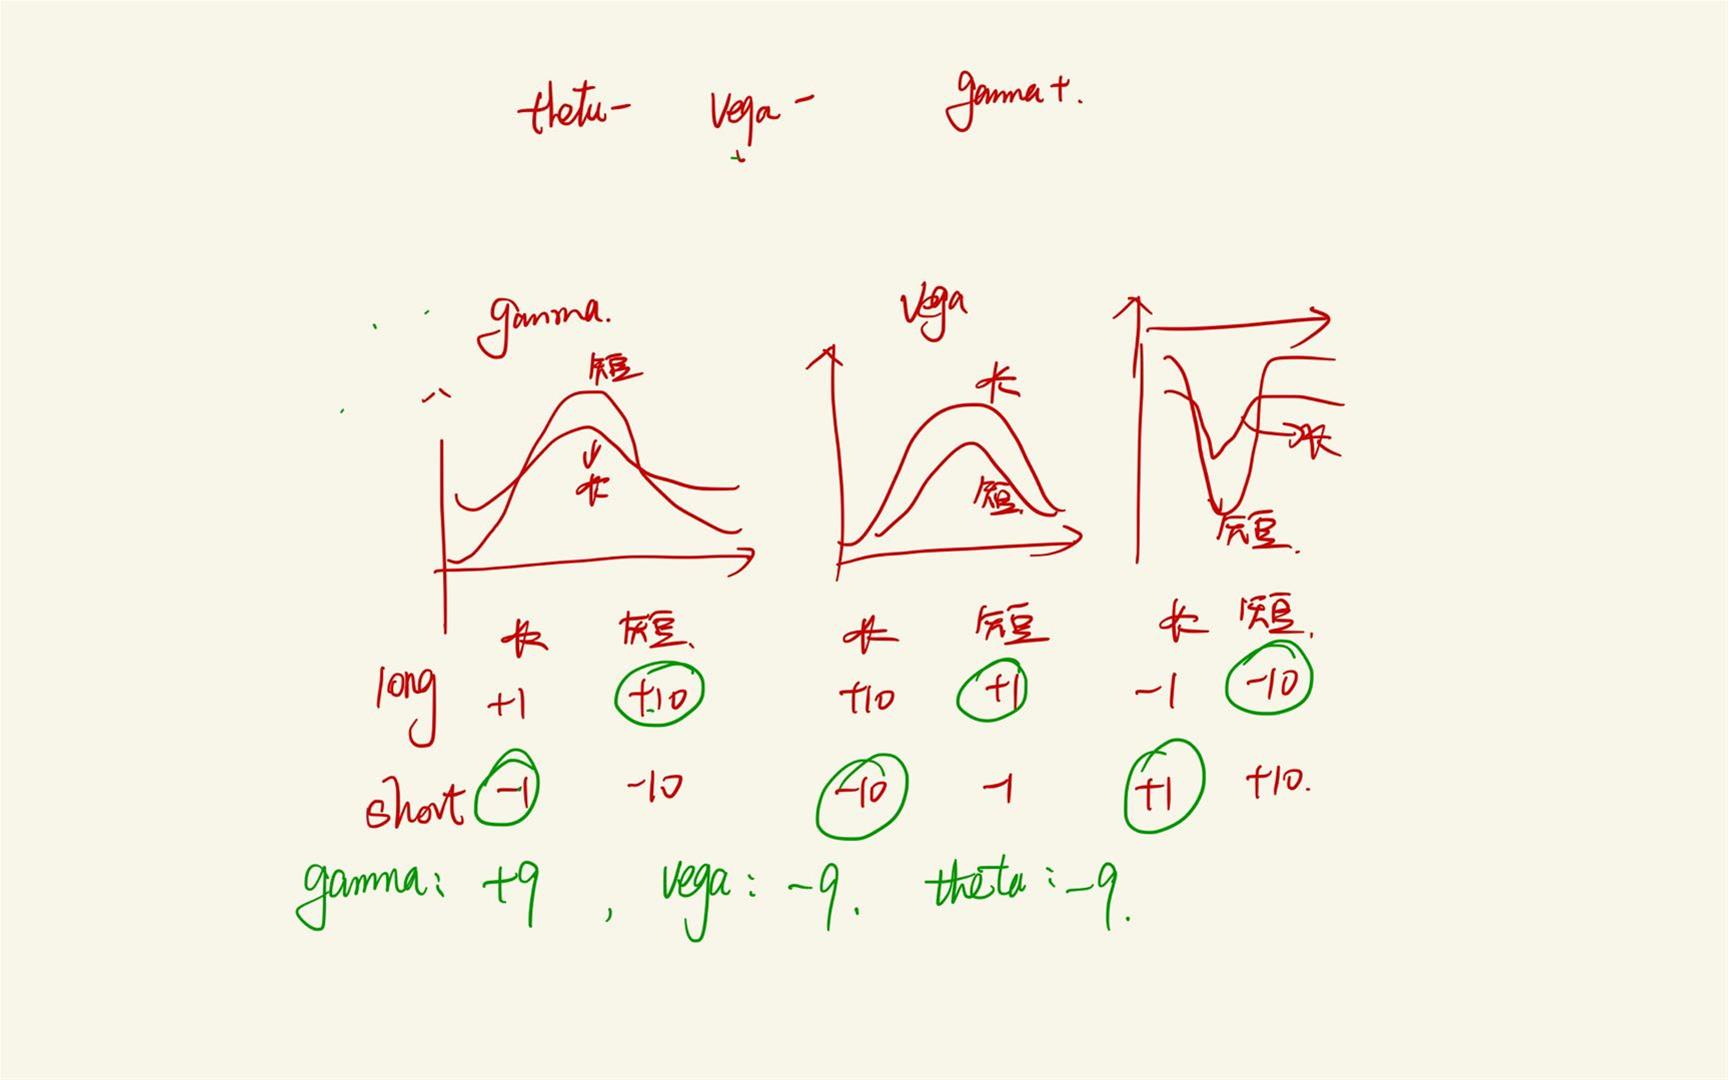 theta- vega - gamma+.
+
gamma. vega
短 长
长 短 长
短.
长 短. 长 短 长 短.
long +1 +10 +10 +1 -1 -10
short -1 -10 -10 -1 +1 +10.
gamma: +9 , vega: -9. theta: -9.